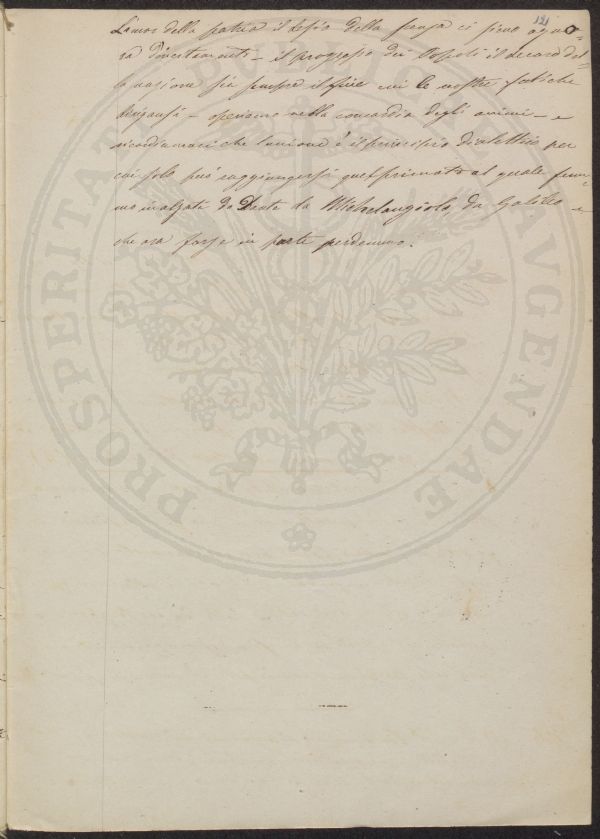 121
L'amor della patria il desio della scienza ci sieno ognō-
ra d'incitamento – il progresso dei Popoli il decoro del-
la nazione sia sempre il fine cui le nostre fatiche
dirigansi – operiamo nella concordia degli animi – e
ricordiamoci che l'unione è il principio dialettico per
cui solo può raggiungersi quel primato al quale fum-
mo inalzati da Dante da Michelangiolo, da Galileo e
che ora forse in parte perdemmo.
PROSPERITATI PUBLICAE AVGENDAE